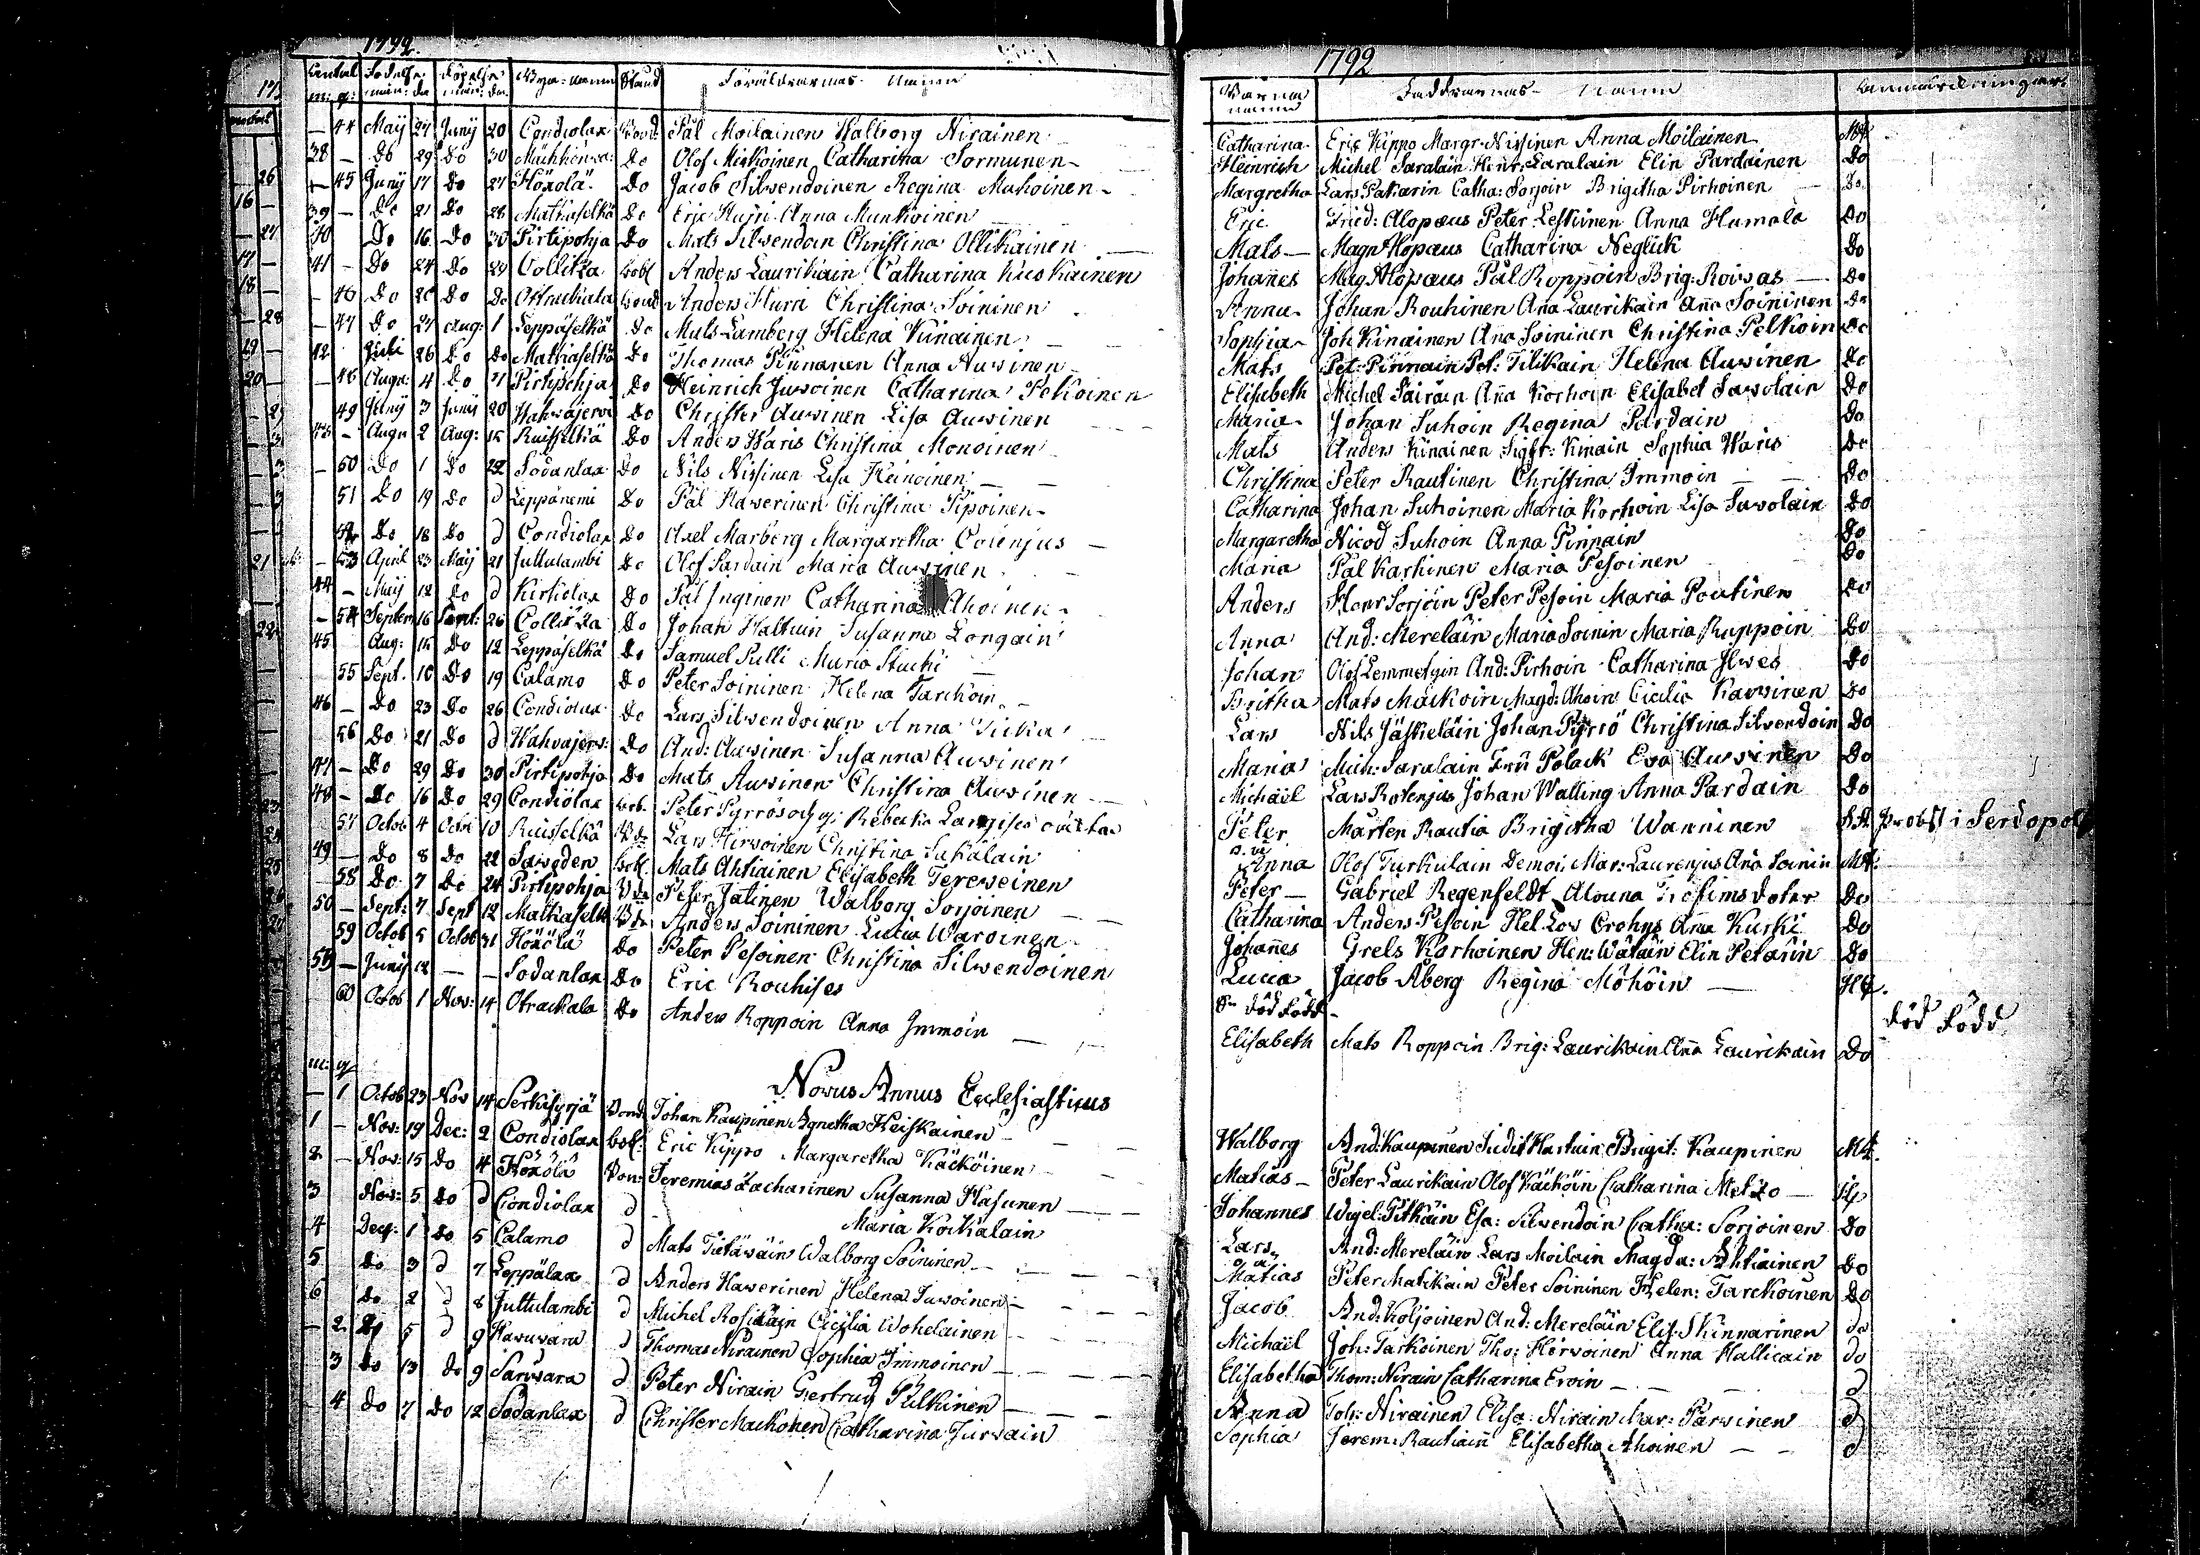 1792.
Antal Födelse Döpelse Bya-namn Stånd Föräldrarnas Namn
m: q: mån: da mån: da
— 44 Maij 27 Junij 20 Condiolax Bond Pål Moilainen Walborg Nirainen
38 — Do 29 Do 30 Do Olof Miskoinen Catharina Sormunen
— 45 Junij 17 Do 27 Höxolä Do Jacob Silvendoinen Regina Muhoinen
39 — Do 21 Do 28 Matkaselkä Do Eric Hurri Anna Munkoinen
40 Do 16 Do 30 Pirtipohja Do Mats Silvendoin Christina Ollikainen
41 — Do 24 Do 29 Collitza bobl Anders Laurikain Catharina Kuiskainen
— 46 Do 26 Do Do bond Anders Hurri Christina Soininen
— 47 Do 27 Aug: 1 Leppäselkä Do Mats Lamberg Helena Kinainen
42 26 Do Do Matkaselkä Do Thomas Pinnanen Anna Auvinen
— 48 Augu: 4 Do 7 Pirtipohja Do Heinrich Juvoinen Catharina Pekoinen
49 Junij 3 Junij 20 Do Christer Auvinen Lisa Auvinen
43 — Augu 2 Aug: 15 Ruisselkä Do Anders Waris Christina Monoinen
— 50 Do 1 Do 22 Sodanlax Do Nils Nissinen Lisa Heinoinen
51 Do 19 Do d Leppänemi Do Pål Haverinen Christina Piipoinen
52 Do 18 Do d Condiolax Do Axel Marberg Margaretha Colenjus
— 53 April 23 Maij 21 Juttulambi Do Olof Pardain Maria Auvinen
44 — Maij 12 Do d Kirkiolax Do Pål Inginen Catharina Ahoinen
— 54 Septem 16 Sept: 26 Collitza Do Johan Haltuin Susanna Longain
45 Aug: 15 Do 12 Leppäselkä Do Samuel Pulli Maria Stucki
55 Sept. 10 Do 19 Calamo Do Peter Soininen Helena Tarckoin
46 — Do 23 Do 26 Condiolax Do Lars Silvendoinen Anna
56 Do 21 Do d Do And: Auvinen Susanna Auvinen
47 — Do 29 Do 30 Pirtipohja Do Mats Auvinen Christina Auvinen
48 — Do 16 Do 29 Condiolax bob. Peter Pyrrö Rebecka
57 Octob 4 Octo 10 Ruisselkä Lars Hirvoinen Christina Sukälain
49 — Do 8 Do 22 Saveden bobl. Mats Ahtiainen Elisabeth Terveinen
58 Do 7 Do 24 Pirtipohja Peter Jatinen Walborg Sorjoinen
50 — Sept: 7 Sept 12 Matkaselkä Anders Soininen Lucia Waroinen
59 Octob 5 Octob 31 Höxölä Do Peter Pesoinen Christina Silvendoinen
— Junij 12 — — Sodanlax Do Eric Rouhises
60 Octob 1 Nov: 14 Otrackala Do Anders Roppoin Anna Immoin
m: q
Novus Annus Ecclesiasticus
— 1 Octob 23 Nov 14 Serkisyrjä Bond Johan Kaupinen Agnetha Heiskainen
1 — Nov: 19 Dec: 2 Condiolax bobl: Eric Kippo Margaretha Käcköinen
2 — Nov: 15 Do 4 Höxölä Bon: Jeremias Zacharinen Susanna Hasunen
3 Nov: 5 Do d Condiolax d Maria Koickalain
4 Dec: 1 Do 5 Calamo d Mats Tietäväin Walborg Soininen
5 Do 3 d 7 Leppälax d Anders Haverinen Helena Juvoinen
6 Do 2 d 8 Juttulambi d Michel Cicilia Wohelainen
— 2 5 d 9 Havuvara d Thomas Nirainen Sophia Immoinen
3 Do 13 do 9 d Peter Nirain Gertrud Pulkinen
— 4 Do 7 Do 12 Sodanlax d Christer Mackonen Catharina Jurvain
1792
Barna namn Faddrarnas Namn Anmärckningar
Catharina Eric Kippo Margr. Nissinen Anna Moilainen Mt
Heinrich Michel Saralain Henr: Saralain Elin Pardainen Do
Margretha Lars Patiarin Catha: Sorjoin Brigitha Pirhoinen Do
Eric Frid: Alopæus Peter Leskinen Anna Humala Do
Mats — Magn Alopæus Catharina Neglick Do
Johañes Mag Alopæus Pål Roppoin Brig: Roivas — Do
Anna Johan Rouhinen Ana Laurikain Aña Soininen Do
Sophia Joh Kinainen Ana Soininen Christina Pelkoin Do
Mats Pet: Pinnain Pet: Tilikain Helena Auvinen Do
Elisabeth Michel Pairäin Aña Korhoin Elisabet Savolain Do
Maria Johan Suhoin Regina Pardain Do
Mats Anders Kinainen Sigfr: Kinain Sophia Waris Do
Christina Peter Rautinen Christina Immoin Do
Catharina Johan Suhoinen Maria Korhoin Lisa Savolain Do
Margaretha Nicod Suhoin Anna Pinnain Do
Maria Pål Karhinen Maria Pesoinen Do
Anders Henr Sorjoin Peter Pesoin Maria Poutinen Do
Anna And: Mereläin Maria Soinin Maria Ruppoin Do
Johan Olof Lemmetyin And: Pirhoin Catharina Ilves Do
Britha Mats Mäckoin Magd: Ahoin Cicilia Karvinen Do
Lars Nils Jäskeläin Johan Pyrrö Christina Silvendoin Do
Maria Mich: Saralain Frū Polack Eva Auvinen Do
Michaël Lars Rotenjus Johan Walling Anna Pardain Do
Peter Mårten Rautia Brigitha Wanninen Probst i Serdopol
Anna Olof Turkulain Demoi: Mar: Laurenjus Aña Soinin Mt:
Peter — Gabriel Regenfeldt Alouna Trofims doter Do
Catharina Anders Pesoin Hel. Lov Crohns Aña Kurki Do
Johañes Grels Karhoinen Hen: Wätäin Elin Petärin Do
Lucia Jacob Åberg Regina Möhöin —
död född död född
Elisabeth Mats Roppoin Brig: Laurikain Aña Laurikain Do
Walborg And: Kaupinen Judit Hartuin Brigit: Kaupinen Mt.
Matias — Peter Laurikain Olof Käcköin Catharina Metzo —
Johannes Wigel: Pitkäin Esa: Silvendoin Catha: Sorjoinen Do
Lars And: Mereläin Lars Moilain Magda: Ahtiainen Do
Matias Peter Matikain Peter Soininen Helen: Tarckoinen Do
Jacob And: Koljoinen And: Mereläin Elis. Skinnarinen do
Michaël Joh: Tarkoinen Tho: Hirvoinen Anna Hallicain do
Elisabetha Thom: Nirain Catharina Eroin — d
Anna Joh: Nirainen Elisa: Nirain Mar: Parvinen d
Sophia Jerem: Rautiain Elisabetha Ahoinen — d